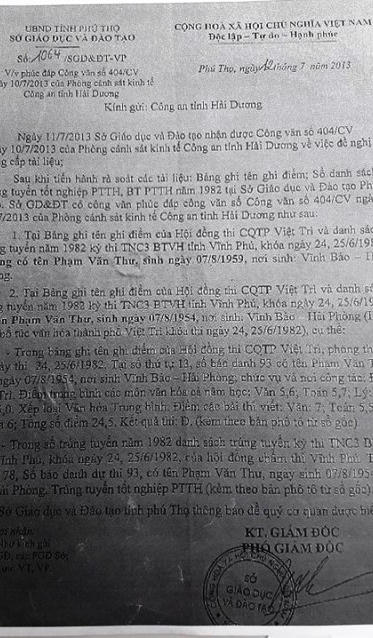 UBND TỈNH PHÚ THỌ
SỞ GIÁO DỤC VÀ ĐÀO TẠO
CỘNG HOÀ XÃ HỘI CHỦ NGHĨA VIỆT NAM
Độc lập - Tự do - Hạnh phúc
Số: 1064/SGD&ĐT-VP
V/v phúc đáp Công văn số 404/CV
ày 10/7/2013 của Phòng cảnh sát kinh tế
Công an tỉnh Hải Dương
Phú Thọ, ngày 12 tháng 7 năm 2013
Kính gửi: Công an tỉnh Hải Dương
Ngày 11/7/2013 Sở Giáo dục và Đào tạo nhận được Công văn số 404/CV
ày 10/7/2013 của Phòng cảnh sát kinh tế Công an tỉnh Hải Dương về việc đề nghị
ng cấp tài liệu;
Sau khi tiến hành rà soát các tài liệu: Bảng ghi tên ghi điểm; Sổ danh sách
ng tuyển tốt nghiệp PTTH, BT PTTH năm 1982 tại Sở Giáo dục và Đào tạo Phú
. Sở GD&ĐT có công văn phúc đáp công văn số Công văn số 404/CV ngày
/7/2013 của Phòng cảnh sát kinh tế Công an tỉnh Hải Dương như sau:
1. Tại Bảng ghi tên ghi điểm của Hội đồng thi CQTP Việt Trì và danh sách
ng tuyển năm 1982 kỳ thi TNC3 BTVH tỉnh Vĩnh Phú, khóa ngày 24, 25/6/198
ng có tên Phạm Văn Thư, sinh ngày 07/8/1959, nơi sinh: Vĩnh Bảo - H
ng.
2. Tại Bảng ghi tên ghi điểm của Hội đồng thi CQTP Việt Trì và danh sách
ng tuyển năm 1982 kỳ thi TNC3 BTVH tỉnh Vĩnh Phú, khóa ngày 24, 25/6/19
n Phạm Văn Thư, sinh ngày 07/8/1954, nơi sinh: Vĩnh Bảo - Hải Phòng (
bổ túc văn hóa thành phố Việt Trì khóa thi ngày 24, 25/6/1982), cụ thể:
- Trong bảng ghi tên ghi điểm của Hội đồng thi CQTP Việt Trì, phòng thi
ày thi 24, 25/6/1982. Tại số thứ tự: 13, số báo danh 93 có tên Phạm Văn T
ngày 07/8/1954, nơi sinh Vĩnh Bảo - Hải Phòng; chức vụ và nơi công tác:
Trì. Điểm trung bình các môn văn hóa cả năm học: Văn 5,6; Toán 5,7; Lý:
,0. Xếp loại Văn hóa Trung bình. Điểm các bài thi viết: Văn: 7; Toán 5,5
6; Tổng số điểm 24,5. Kết quả thi: Đ, (kèm theo bản phô tô từ sổ gốc)
- Trong sổ trúng tuyển năm 1982 danh sách trúng tuyển kỳ thi TNC3 BT
Vĩnh Phú, khóa ngày 24, 25/6/1982, của hội đồng chấm thi Vĩnh Phú.
78, Số báo danh dự thi 93, có tên Phạm Văn Thư, ngày sinh 07/8/1954
ải Phòng. Trúng tuyển tốt nghiệp PTTH (kèm theo bản phô tô từ sổ gốc)
Sở Giáo dục và Đào tạo tỉnh Phú Thọ thông báo để quý cơ quan được biết
nhận:
Như kính gửi
GĐ, các PGĐ Sở;
Lưu: VT, VP.
KT. GIÁM ĐỐC
PHÓ GIÁM ĐỐC
SỞ
GIÁO DỤC
VÀ ĐÀO TẠO